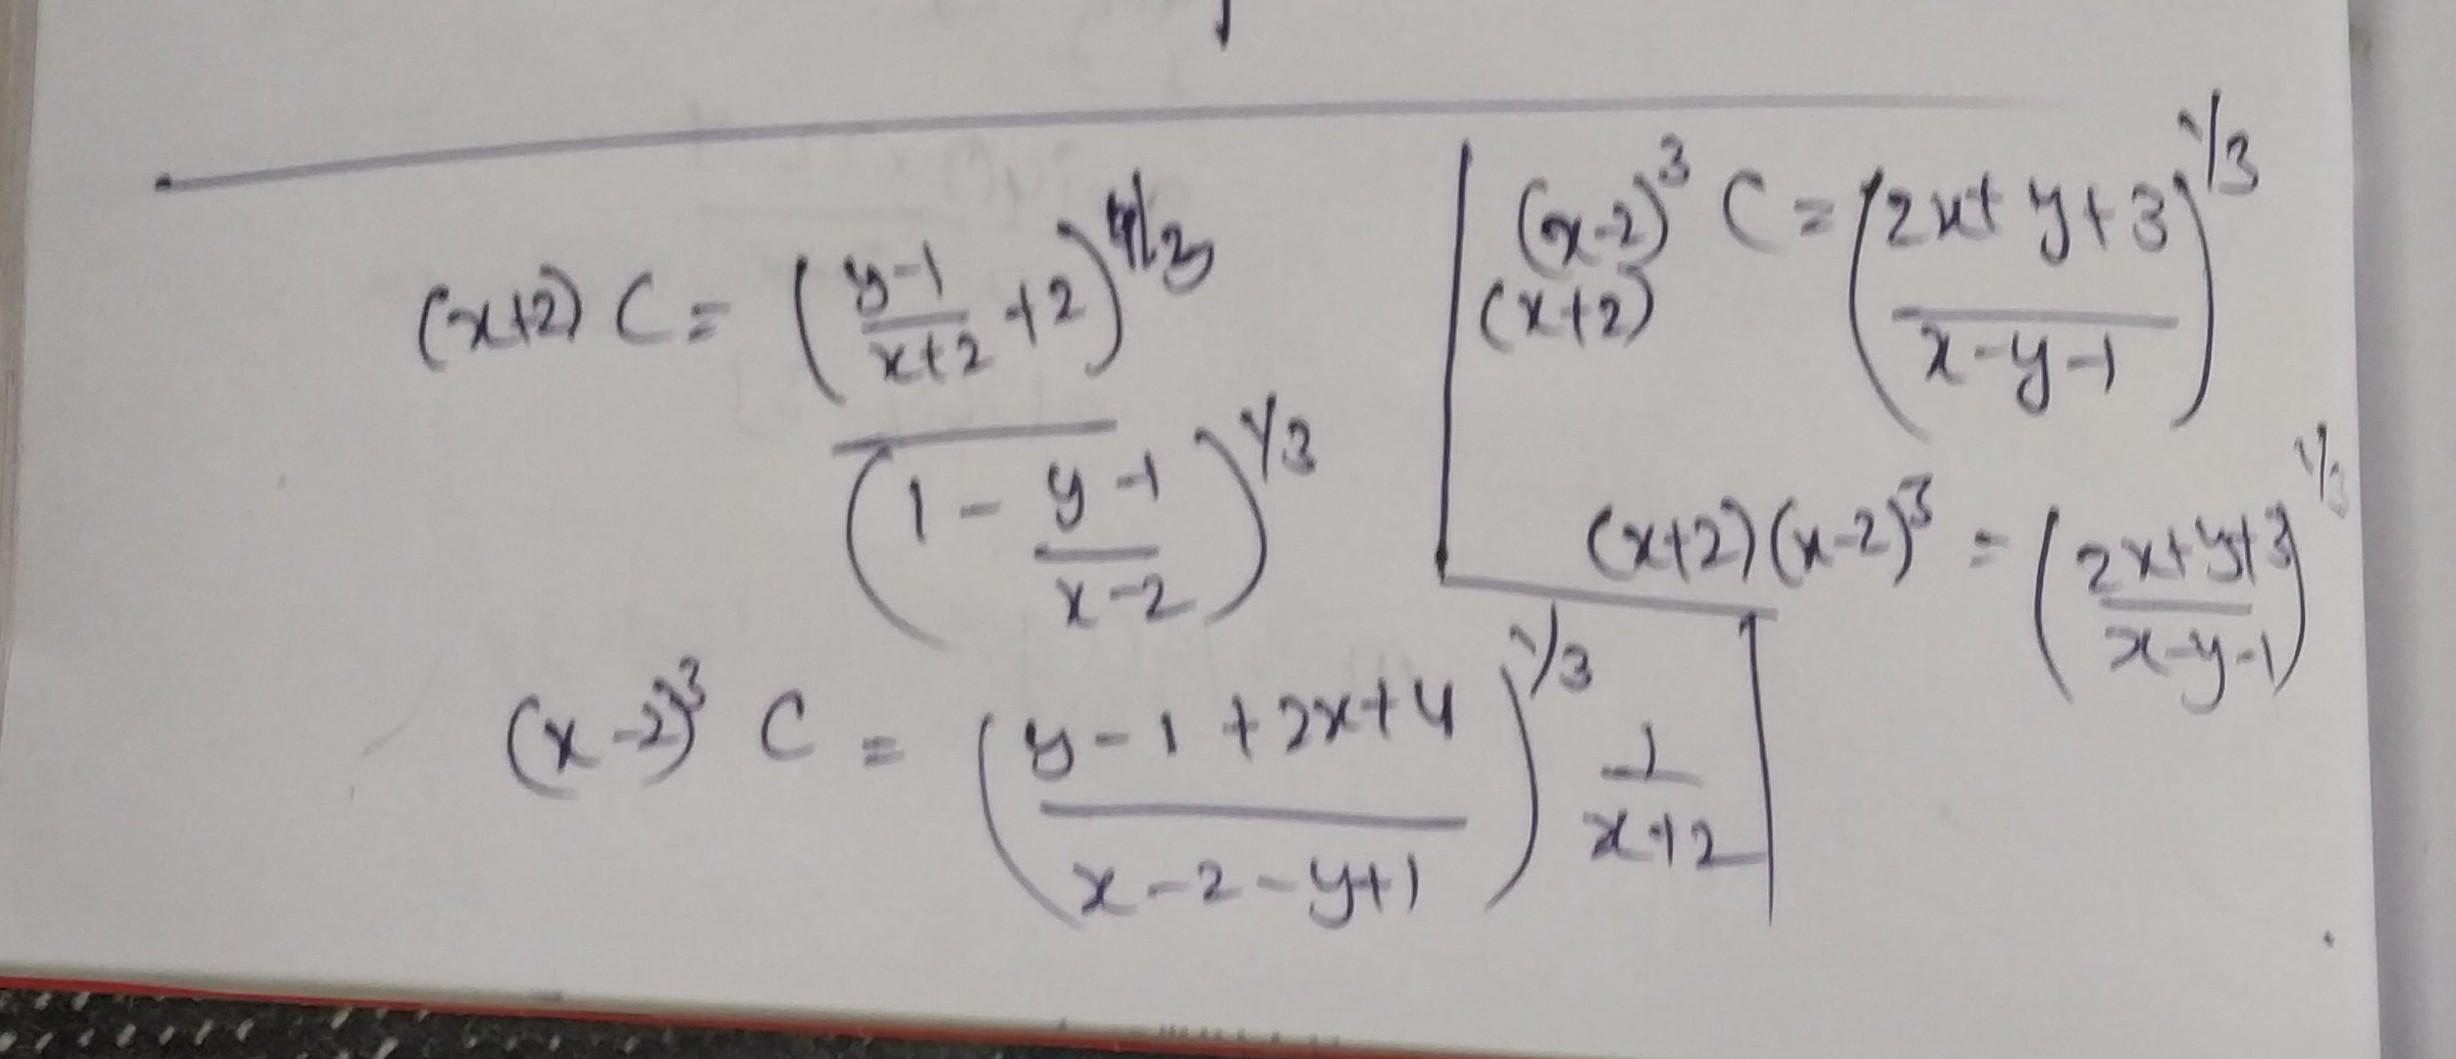 (x+2) C = ((y-1)/(x+2) + 2)^4/3 / (1 - (y-1)/(x-2))^1/3
(x-2)^3 C = ((y-1+2x+4)/(x-2-y+1))^1/3 1/(x+2)
(x-2)^3 (x+2) C = ((2x+y+3)/(x-y-1))^1/3
(x+2)(x-2)^3 = ((2x+y+3)/(x-y-1))^1/3